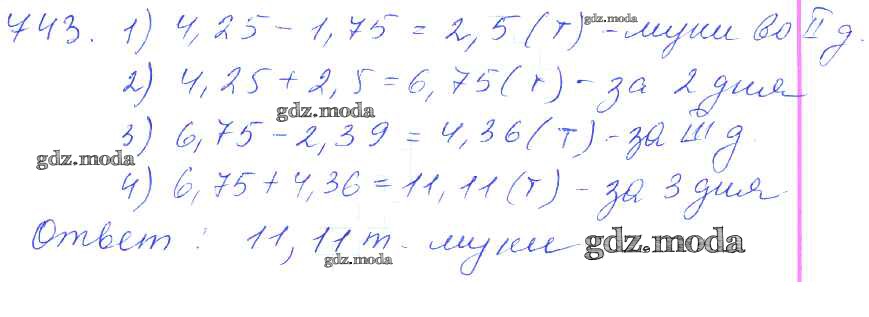 743. 1) 4,25 - 1,75 = 2,5 (т) - муки во II д.
gdz.moda
2) 4,25 + 2,5 = 6,75 (т) - за 2 дня
gdz.moda
3) 6,75 - 2,39 = 4,36 (т) - за III д.
gdz.moda
4) 6,75 + 4,36 = 11,11 (т) - за 3 дня
Ответ : 11,11 т. муки gdz.moda
gdz.moda